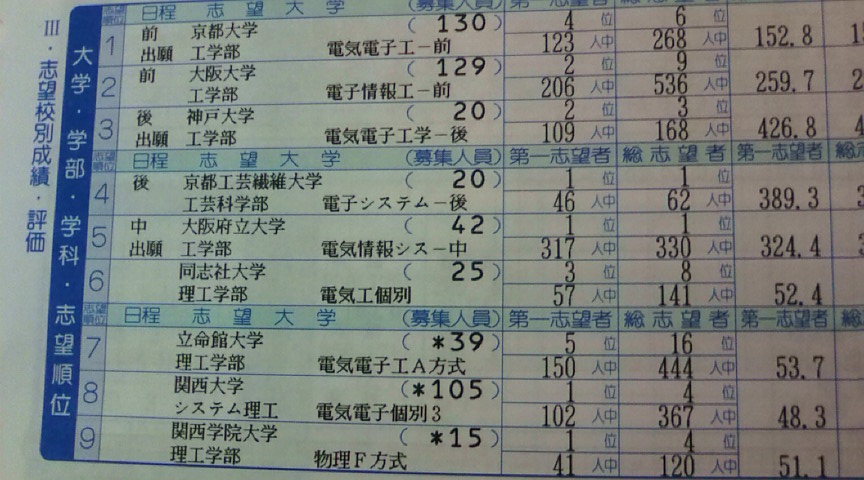 Ⅲ・志望校別成績・評価
大学・学部・学科・志望順位
志望順位 日程 志望大学 (募集人員) 第一志望者 総志望者
1 前 京都大学 (130) 4位 6位
出願 工学部 電気電子工－前 123人中 268人中 152.8
2 前 大阪大学 (129) 2位 9位
工学部 電子情報工－前 206人中 536人中 259.7
3 後 神戸大学 (20) 2位 3位
出願 工学部 電気電子工学－後 109人中 168人中 426.8
志望順位 日程 志望大学 (募集人員) 第一志望者 総志望者 第一志望者
4 後 京都工芸繊維大学 (20) 1位 1位
工芸科学部 電子システム－後 46人中 62人中 389.3
5 中 大阪府立大学 (42) 1位 1位
出願 工学部 電気情報シス－中 317人中 330人中 324.4
6 同志社大学 (25) 3位 8位
理工学部 電気工個別 57人中 141人中 52.4
志望順位 日程 志望大学 (募集人員) 第一志望者 総志望者 第一志望者
7 立命館大学 (*39) 5位 16位
理工学部 電気電子工A方式 150人中 444人中 53.7
8 関西大学 (*105) 1位 4位
システム理工 電気電子個別3 102人中 367人中 48.3
9 関西学院大学 (*15) 1位 4位
理工学部 物理F方式 41人中 120人中 51.1